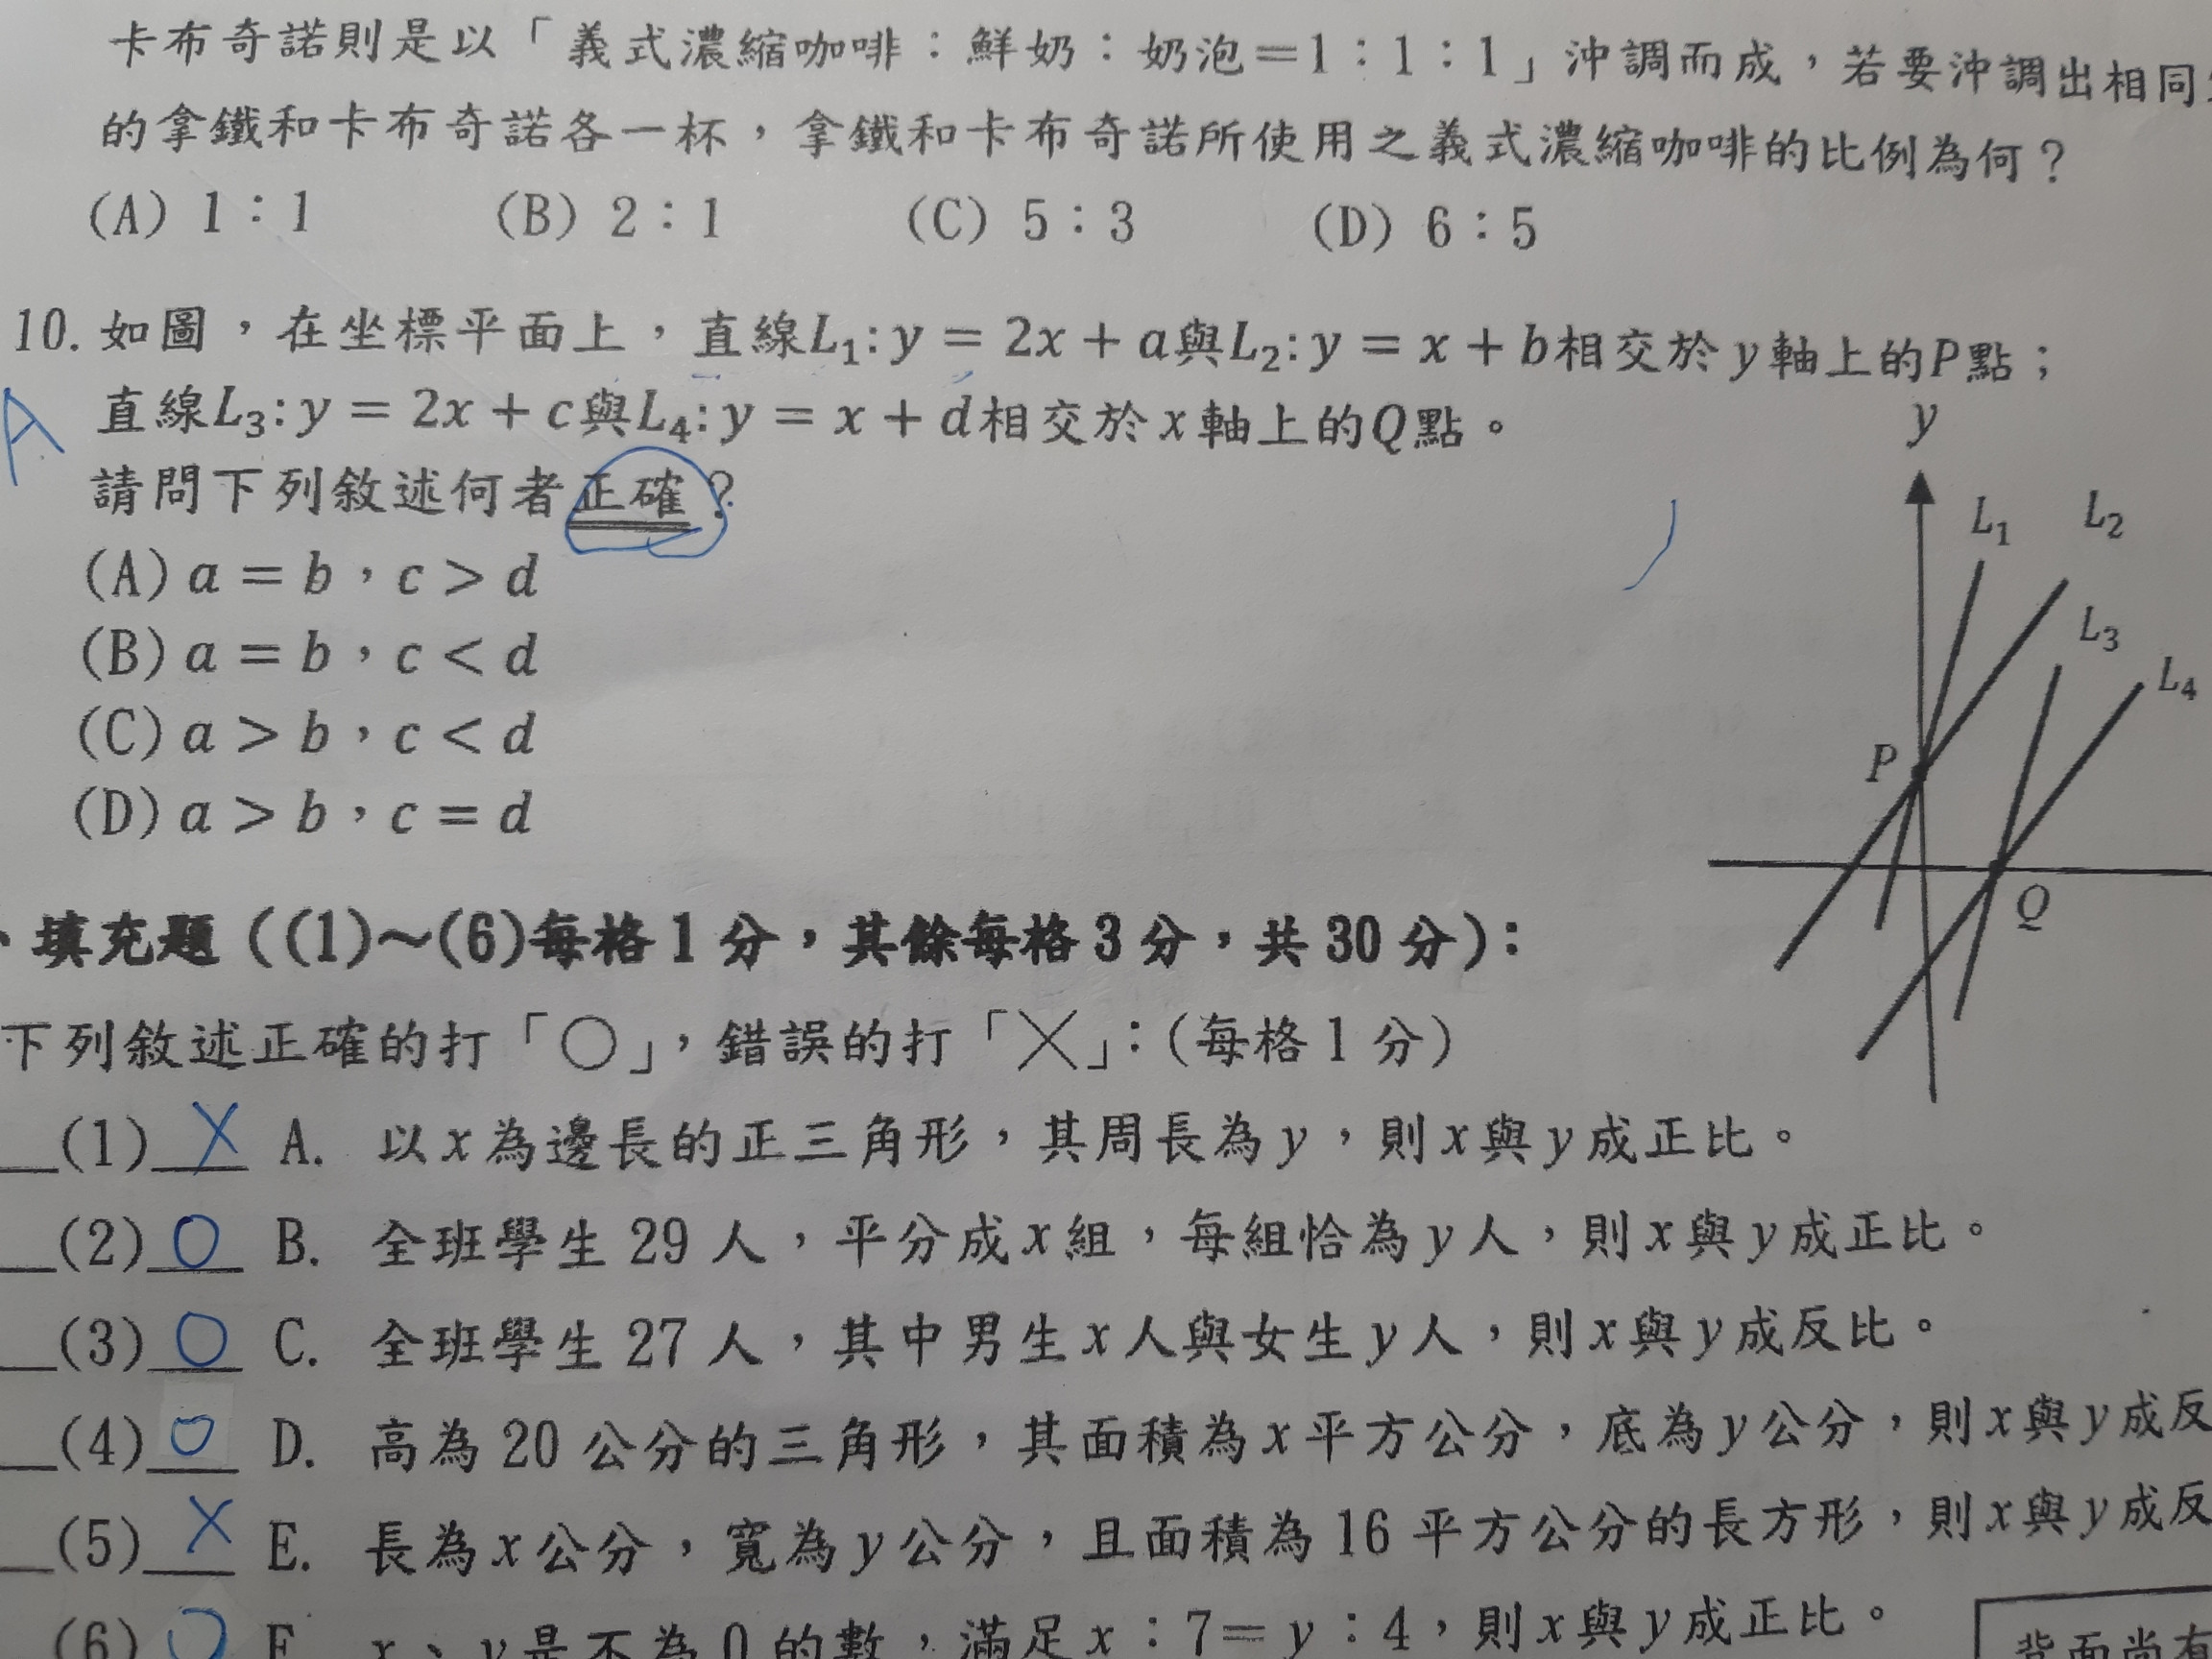 卡布奇諾則是以「義式濃縮咖啡：鮮奶：奶泡＝1：1：1」沖調而成，若要沖調出相同
的拿鐵和卡布奇諾各一杯，拿鐵和卡布奇諾所使用之義式濃縮咖啡的比例為何？
(A) 1：1 (B) 2：1 (C) 5：3 (D) 6：5
10. 如圖，在坐標平面上，直線L₁: y = 2x + a與L₂: y = x + b相交於y軸上的P點；
A 直線L₃: y = 2x + c與L₄: y = x + d相交於x軸上的Q點。
請問下列敘述何者正確？
(A) a = b，c > d
(B) a = b，c < d
(C) a > b，c < d
(D) a > b，c = d
y
L₁ L₂
L₃
L₄
P
Q
、填充題 ((1)～(6)每格1分，其餘每格3分，共30分)：
下列敘述正確的打「○」，錯誤的打「╳」：(每格1分)
(1) X A. 以x為邊長的正三角形，其周長為y，則x與y成正比。
(2) O B. 全班學生29人，平分成x組，每組恰為y人，則x與y成正比。
(3) O C. 全班學生27人，其中男生x人與女生y人，則x與y成反比。
(4) O D. 高為20公分的三角形，其面積為x平方公分，底為y公分，則x與y成反
(5) X E. 長為x公分，寬為y公分，且面積為16平方公分的長方形，則x與y成反
(6) O F. x、y是不為0的數，滿足x：7＝y：4，則x與y成正比。
背面尚有